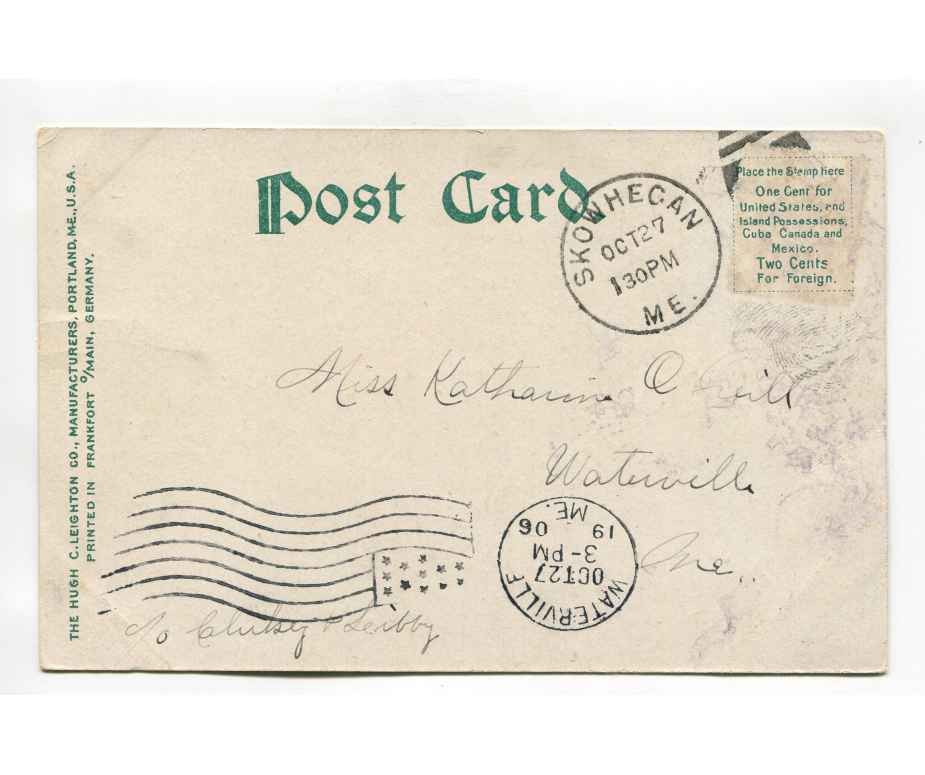 THE HUGH C. LEIGHTON CO., MANUFACTURERS, PORTLAND, ME., U.S.A.
PRINTED IN FRANKFORT O/MAIN, GERMANY.
Post Card
SKOWHEGAN
OCT 27
130PM
ME.
Place the Stamp Here
One Cent for
United States, and
Island Possessions,
Cuba Canada and
Mexico.
Two Cents
For Foreign.
Miss Katharine O'Neill
Waterville
Me.
WATERVILLE
OCT 27
3-PM
19 06
ME.
c/o Clukey & Libby